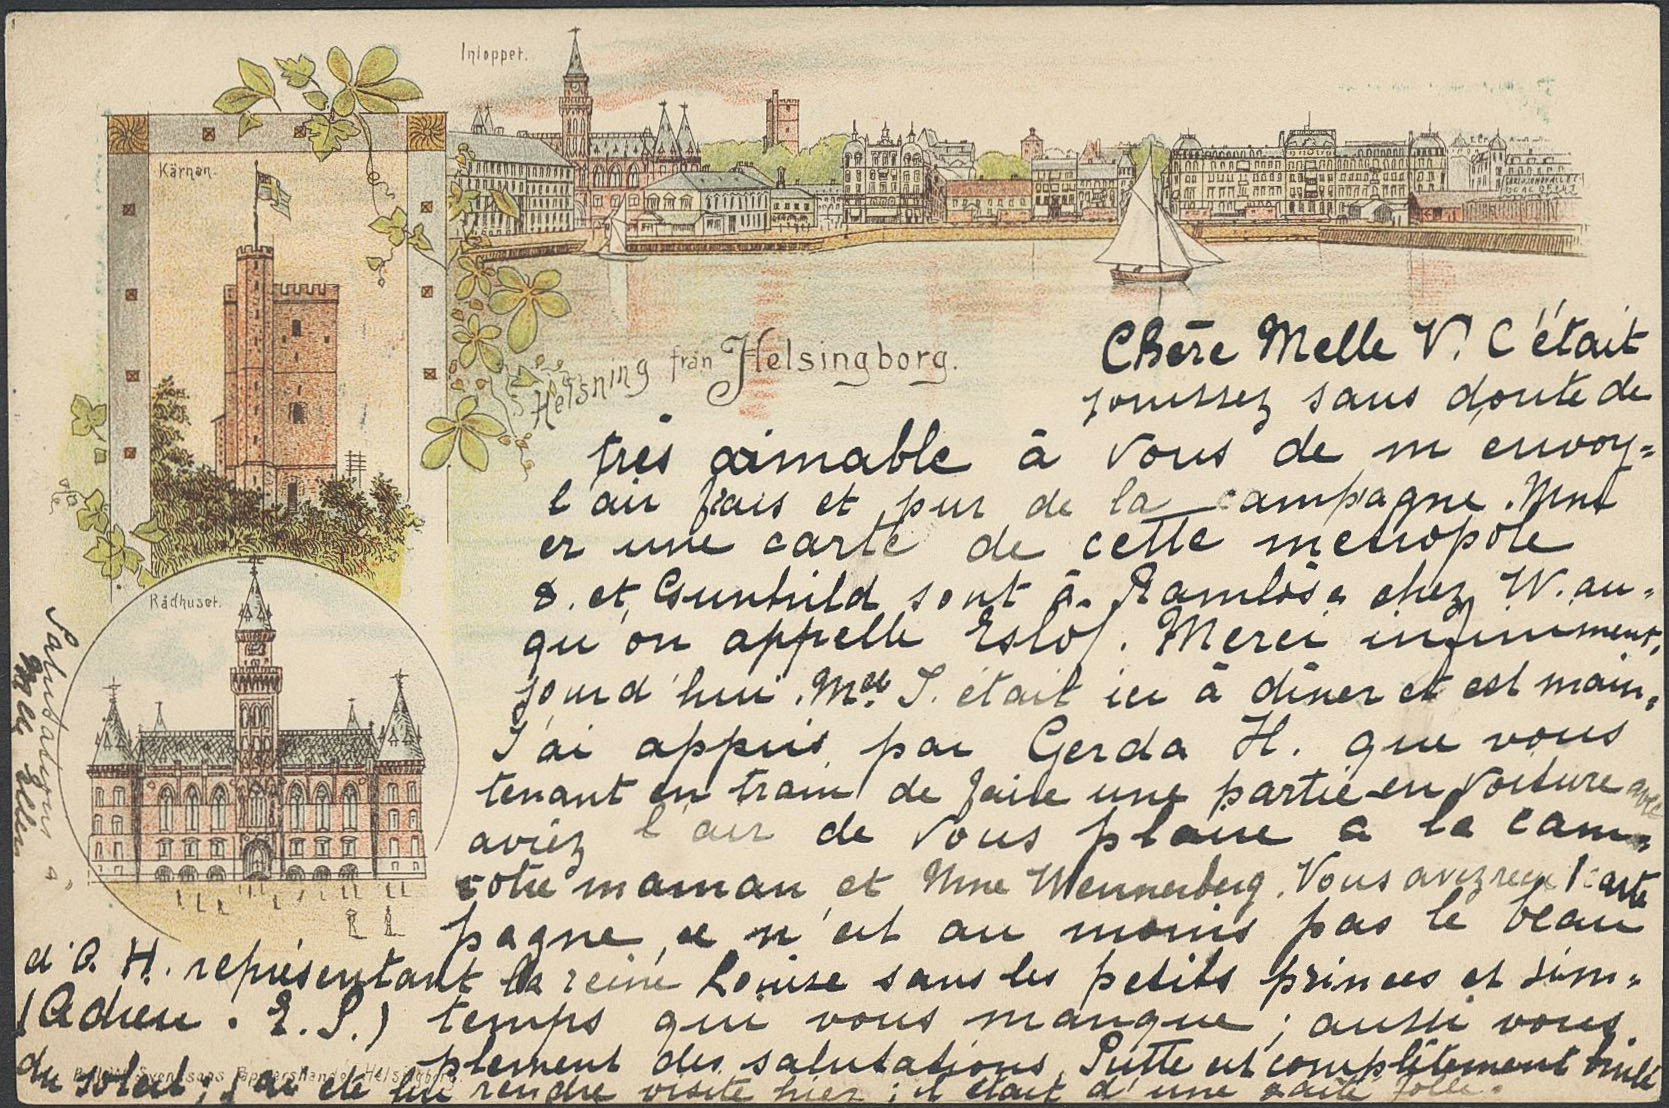 Inloppet.
Kärnan.
Rådhuset.
Helsning från Helsingborg.
Chère Melle V. C'était
jouissez sans doute de
très aimable à vous de m'envoy=
l'air frais et pur de la campagne. Mme
er une carte de cette metropole
S. et Gunhild sont à Ramlösa chez W. au=
qu'on appelle Eslöf. Merci infiniment.
jourd'hui. Mll. S. était ici à dîner et est main=
J'ai appris par Gerda H. que vous
tenant en train de faire une partie en voiture avec
aviez l'air de vous plaire à la cam=
votre maman et Mme Wennerberg. Vous avez reçu 1 carte
pagne, ce n'est au moins pas le beau
d'O. H. représentant la reine Louise sans les petits princes et sim=
(Adieu. E. S.) temps qui vous manque; aussi vous
plement des salutations. Putte est complètement brûlé
du soleil; j'ai été lui rendre visite hier; il était d'une gaité folle.
Salutations à
Mlle Ellen
Svenssons Pappershandel, Helsingborg.